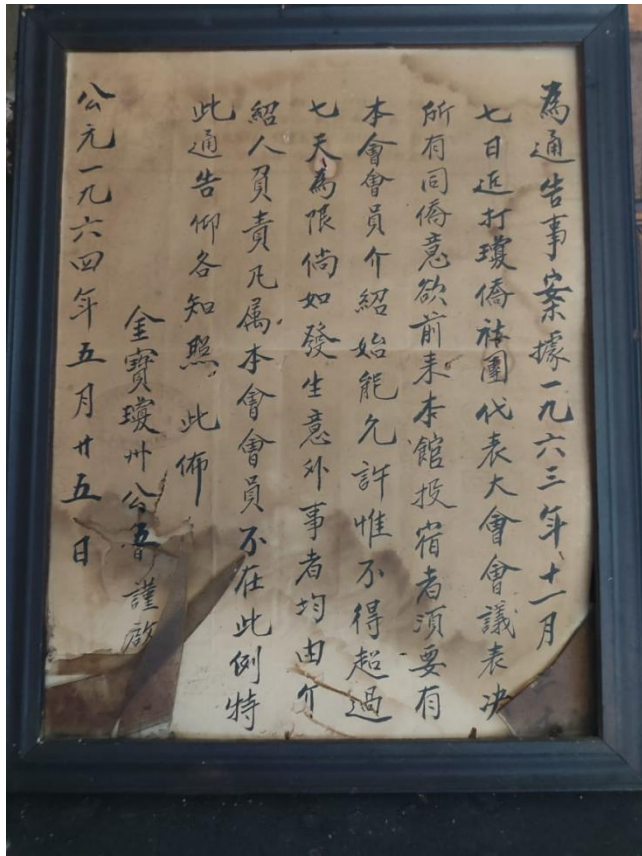 為通告事案據一九六三年十一月
七日近打瓊僑社團代表大會會議表决
所有同僑意欲前来本館投宿者須要有
本會會員介紹始能允許惟不得超過
七天為限倘如發生意外事者均由介
紹人負責凡属本會會員不在此例特
此通告仰各知照此佈
金寶瓊州公會謹啟
公元一九六四年五月廿五日